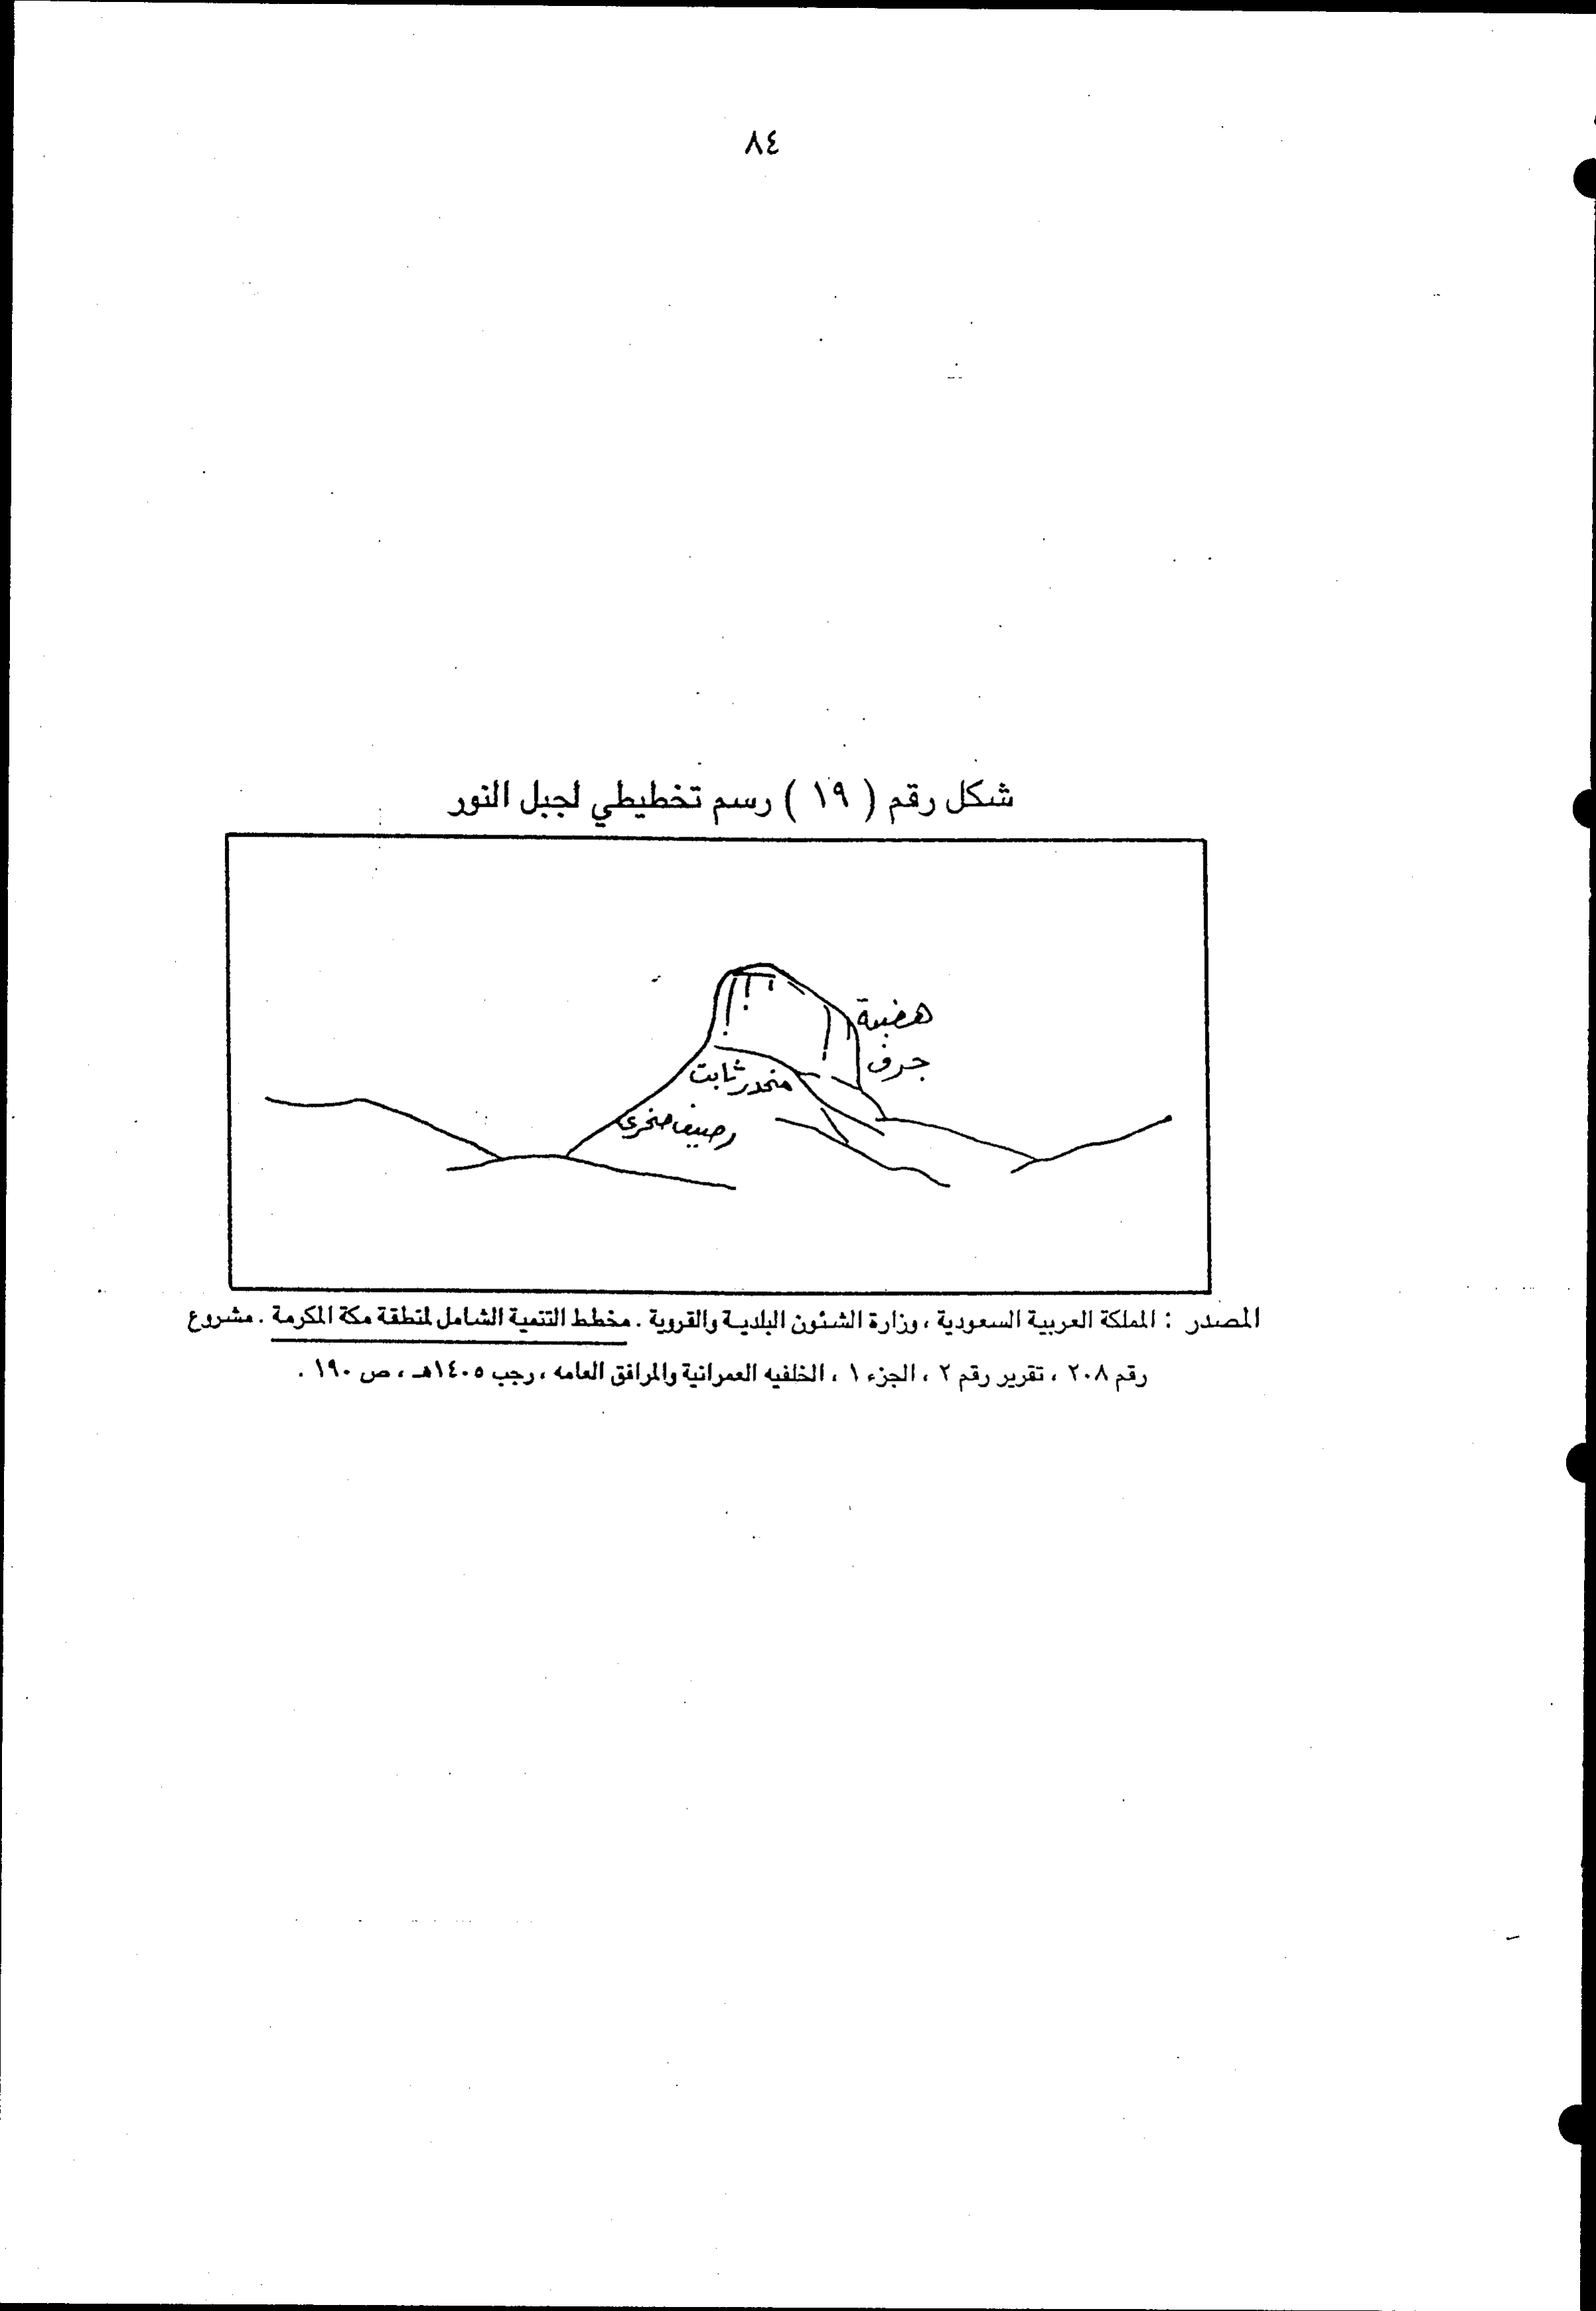 ٨٤
شكل رقم ( ١٩ ) رسم تخطيطي لجبل النور
هضبة
جرف
منحدر ثابت
رصيف صخرى
المصدر : المملكة العربية السعودية ، وزارة الشئون البلدية والقروية . مخطط التنمية الشامل لمنطقة مكة المكرمة . مشروع
رقم ٢٠٨ ، تقرير رقم ٢ ، الجزء ١ ، الخلفيه العمرانية والمرافق العامه ، رجب ١٤٠٥هـ ، ص ١٩٠ .